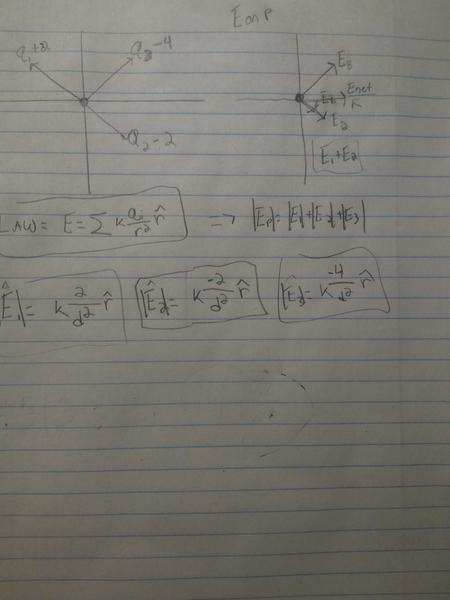 E on P
q₁ +2
Q₃ -4
Q₂ -2
E₃
E₁ Enet
E₂
E₁+E₂
LAW = E = ∑ K Qᵢ/r² r̂ => |Eₚ| = |E₁|+|E₂|+|E₃|
|Ê₁| = K 2/d² r̂ |Ê₂| = K -2/d² r̂ |E₃| = K -4/d² r̂